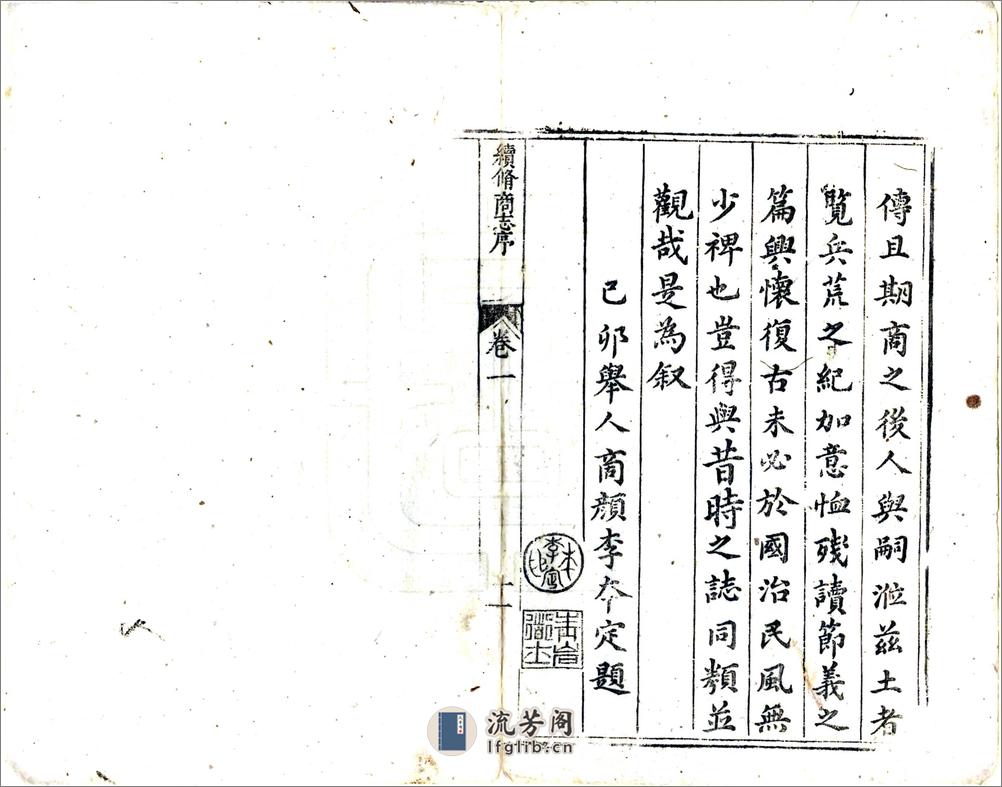 傳且期商之後人與嗣涖茲土者
覽兵荒之紀加意恤殘讀節義之
篇興懷復古未必於國治民風無
少裨也豈得與昔時之誌同類並
觀哉是為叙
己卯舉人商顔李夲定題
續脩商志序
卷一
十一
流芳阁
lfglib.cn